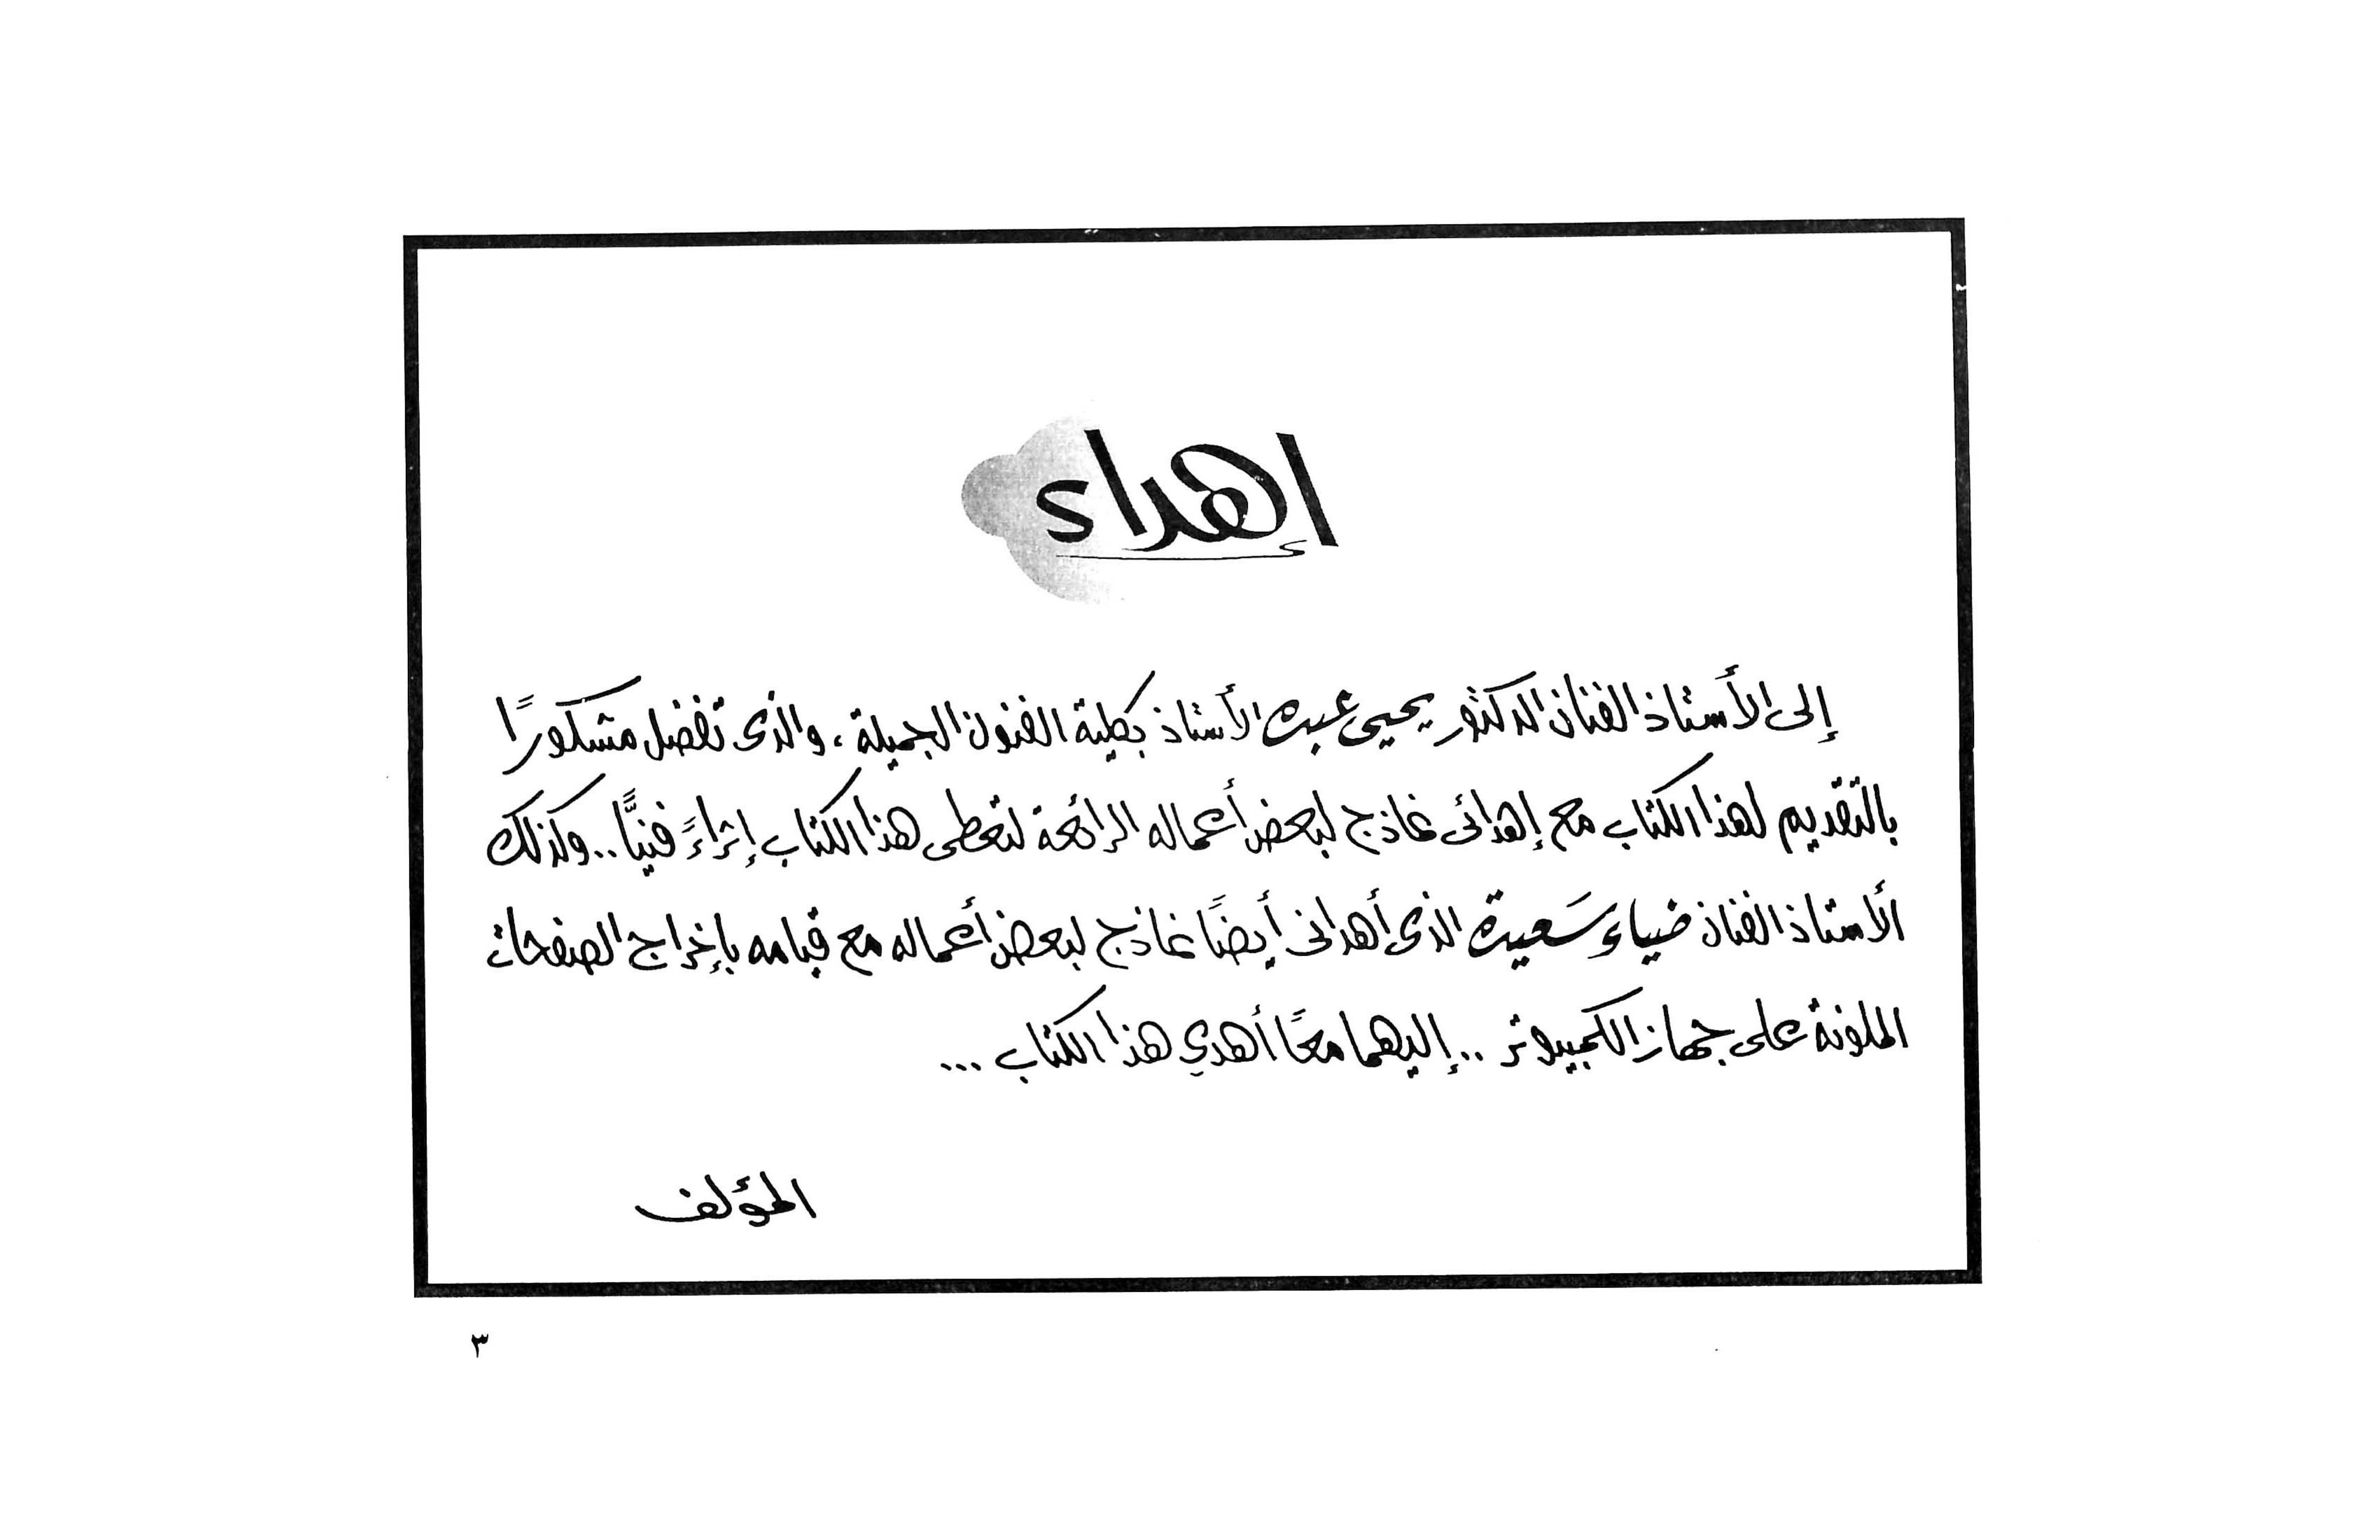 إهداء
إلى الأستاذ الفنان الدكتور يحيى عبده الأستاذ بكلية الفنون الجميلة ، والذى تفضل مشكورًا
بالتقديم لهذا الكتاب مع إهدائى نماذج لبعض أعماله الرائعة لتعطى هذا الكتاب إثراءً فنيًّا .. وكذلك
الأستاذ الفنان ضياء سَعيدة الذى أهدانى أيضًا نماذج لبعض أعماله مع قيامه بإخراج الصفحات
الملونة على جهاز الكمبيوتر .. إليهما معًا أهدي هذا الكتاب ...
المؤلف
٣